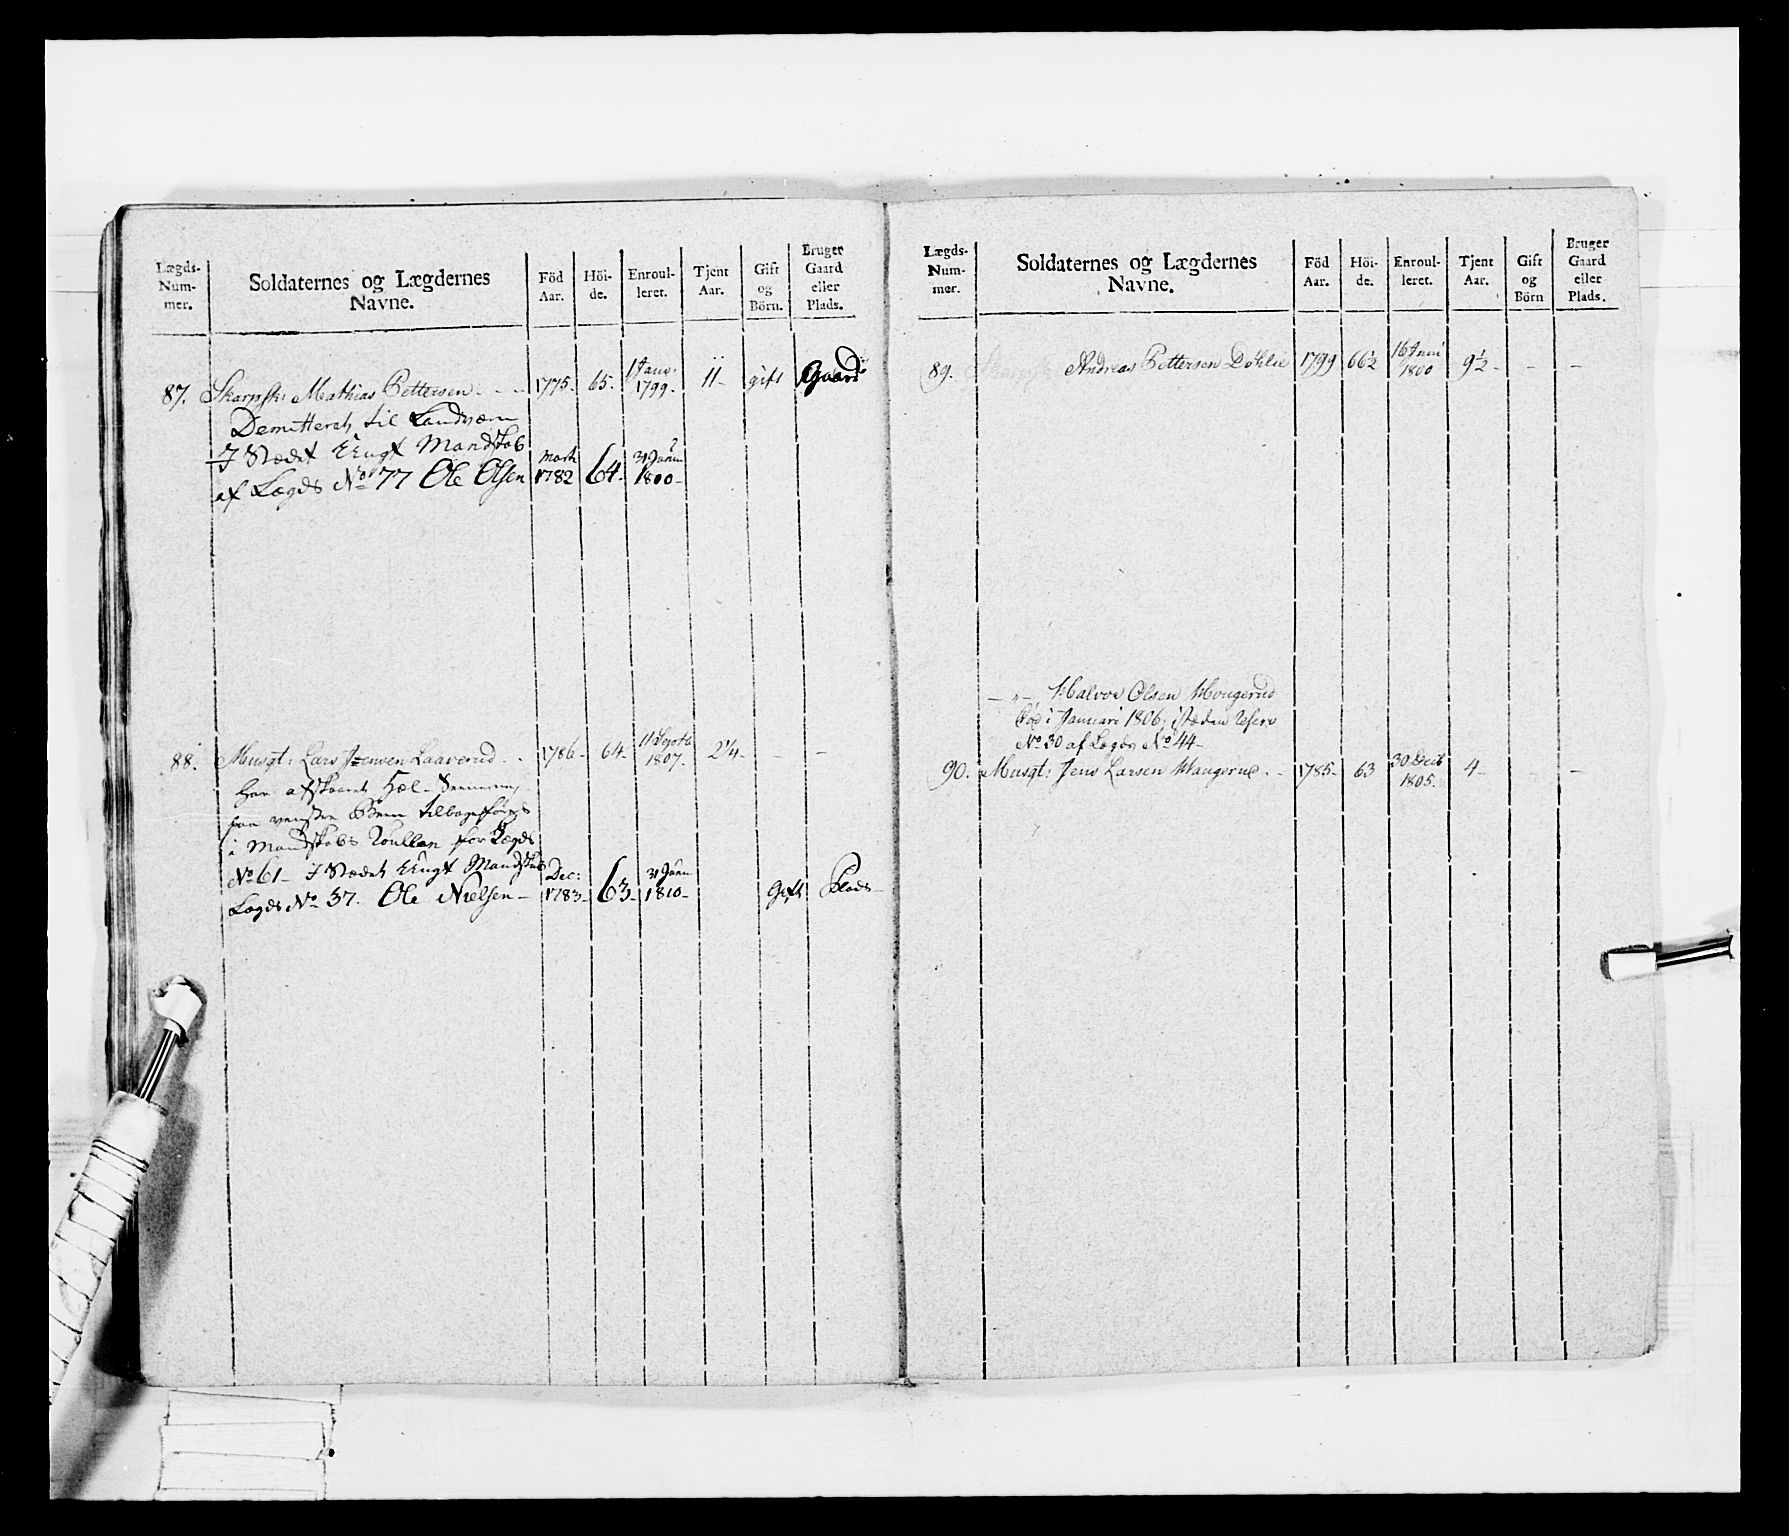 Lægds-
Num-
mer.
Soldaternes og Lægdernes
Navne.
Föd
Aar.
Höi-
de.
Enroul-
leret.
Tjent
Aar.
Gift
og
Börn.
Bruger
Gaard
eller
Plads.
87. Skarpsk: Mathias Pettersen - - 1775. 65. 1 Janv: 1799. 11 - gift Gaard
Demitteret til Landværn
I Stedet Mandskab
af Lægds No 77 Ole Olsen 1782 64. 1800 -
88. Musqt: Lars Jensen Laaverud - 1786 - 64 - 11 Septb 1807. 2¼ - - -
har afskaaret Hæl-
paa venstre Been
i Mandskabs Roullen for Lægds
No 61 - I Stedet Mandskab
Lægds No 37. Ole Nielsen - Dec: 1783 - 63 - 1810 - Gift Plads -
Lægds-
Num-
mer.
Soldaternes og Lægdernes
Navne.
Föd
Aar.
Höi-
de.
Enroul-
leret.
Tjent
Aar.
Gift
og
Börn
Bruger
Gaard
eller
Plads.
89. Andreas Pettersen Döhlie 1799 66½ 16 Juni 1800 9½ - - -
- " - Halvor Olsen Hougerud
föd i Januari 1806, i steden Reserv
No 30 af Lægds No 44 -
90. Musqt: Jens Larsen Haugerud - - 1785 - 63 30 Decb 1805. 4 - - -